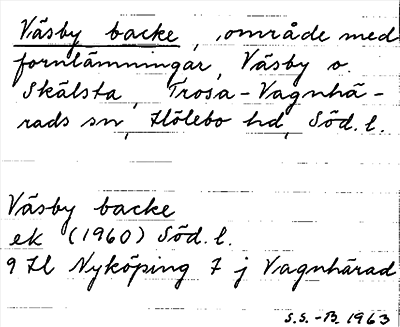 Väsby backe, område med
fornlämningar, Väsby o.
Skälsta, Trosa-Vagnhä-
rads sn, Hölebo hd, Söd. l.
Väsby backe
ek (1960) Söd. l.
9 H Nyköping 7 j Vagnhärad
S.S.-B. 1963